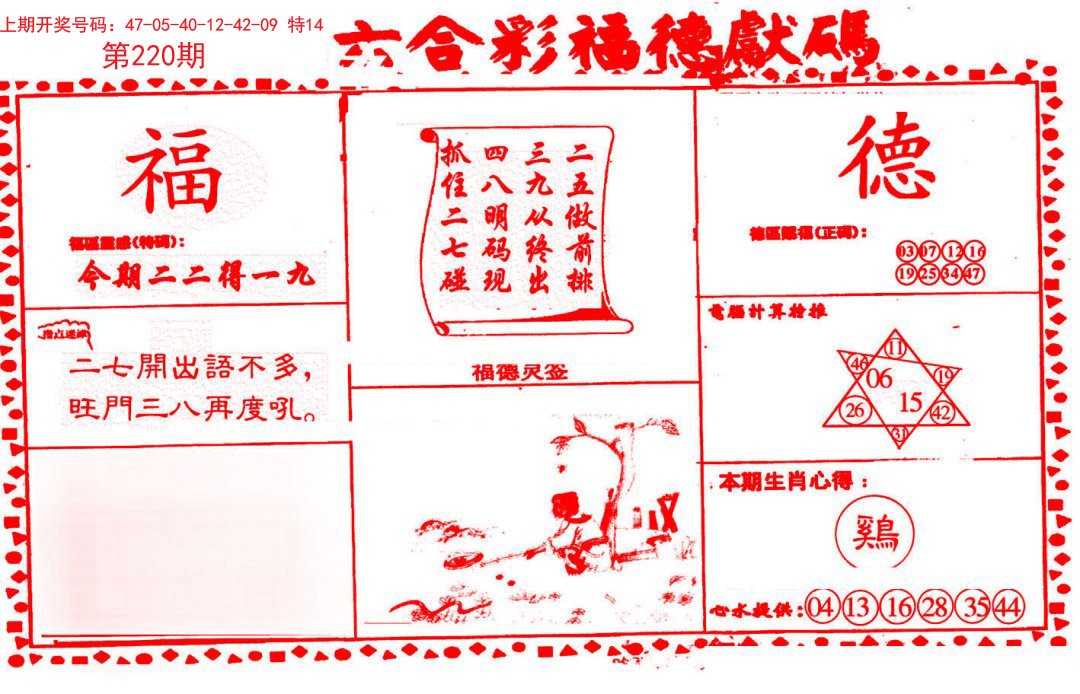 上期开奖号码：47-05-40-12-42-09 特14
第220期
六合彩福德獻碼
福
福區靈感(特碼)：
今期二二得一九
二五做前排
三九从终出
四八明码现
抓住二七碰
福德灵签
德
德區賜福(正碼)：
03 07 12 16
19 25 34 47
指点迷津
二七開出語不多，
旺門三八再度吼。
電腦計算特推
11
46 19
06
15
26 42
31
本期生肖心得：
鷄
心水提供：04 13 16 28 35 44